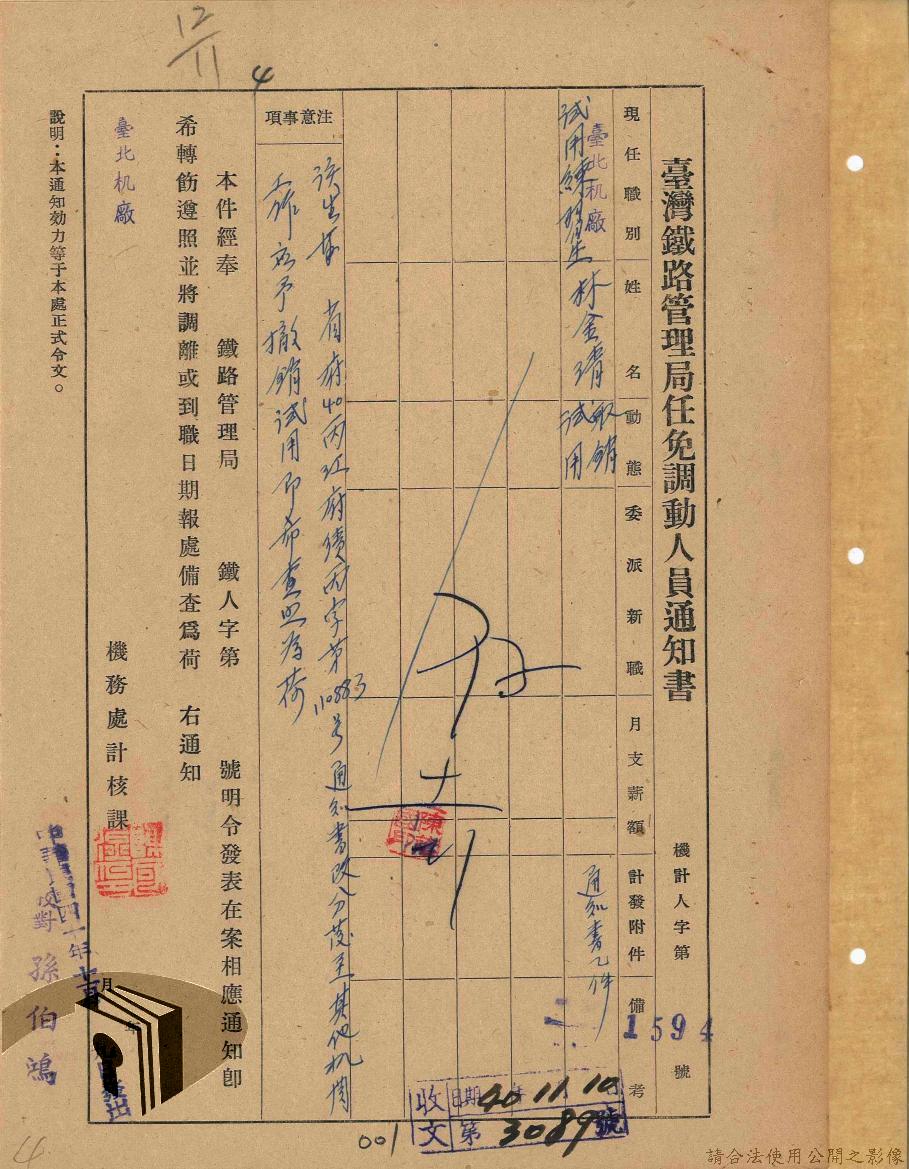 臺灣鐵路管理局任免調動人員通知書
機計人字第1594號
現任職別 姓名 動態 委派新職 月支薪額 計發附件 備考
臺北机廠
試用練習生 林金 取銷試用 通知書乙件
注意事項
該生葉 省府40丙江府績丙字第110883号通知書改分發至其他机関
工作應予撤銷試用即希查照為荷
本件經奉 鐵路管理局 鐵人字第 號明令發表在案相應通知卽
希轉飭遵照並將調離或到職日期報處備查爲荷 右通知
臺北机廠
機務處計核課
說明：本通知効力等于本處正式令文。
12/11
4
校對 孫伯鴻
收文 日期 40.11.10
第 3089 號
001
4
請合法使用公開之影像